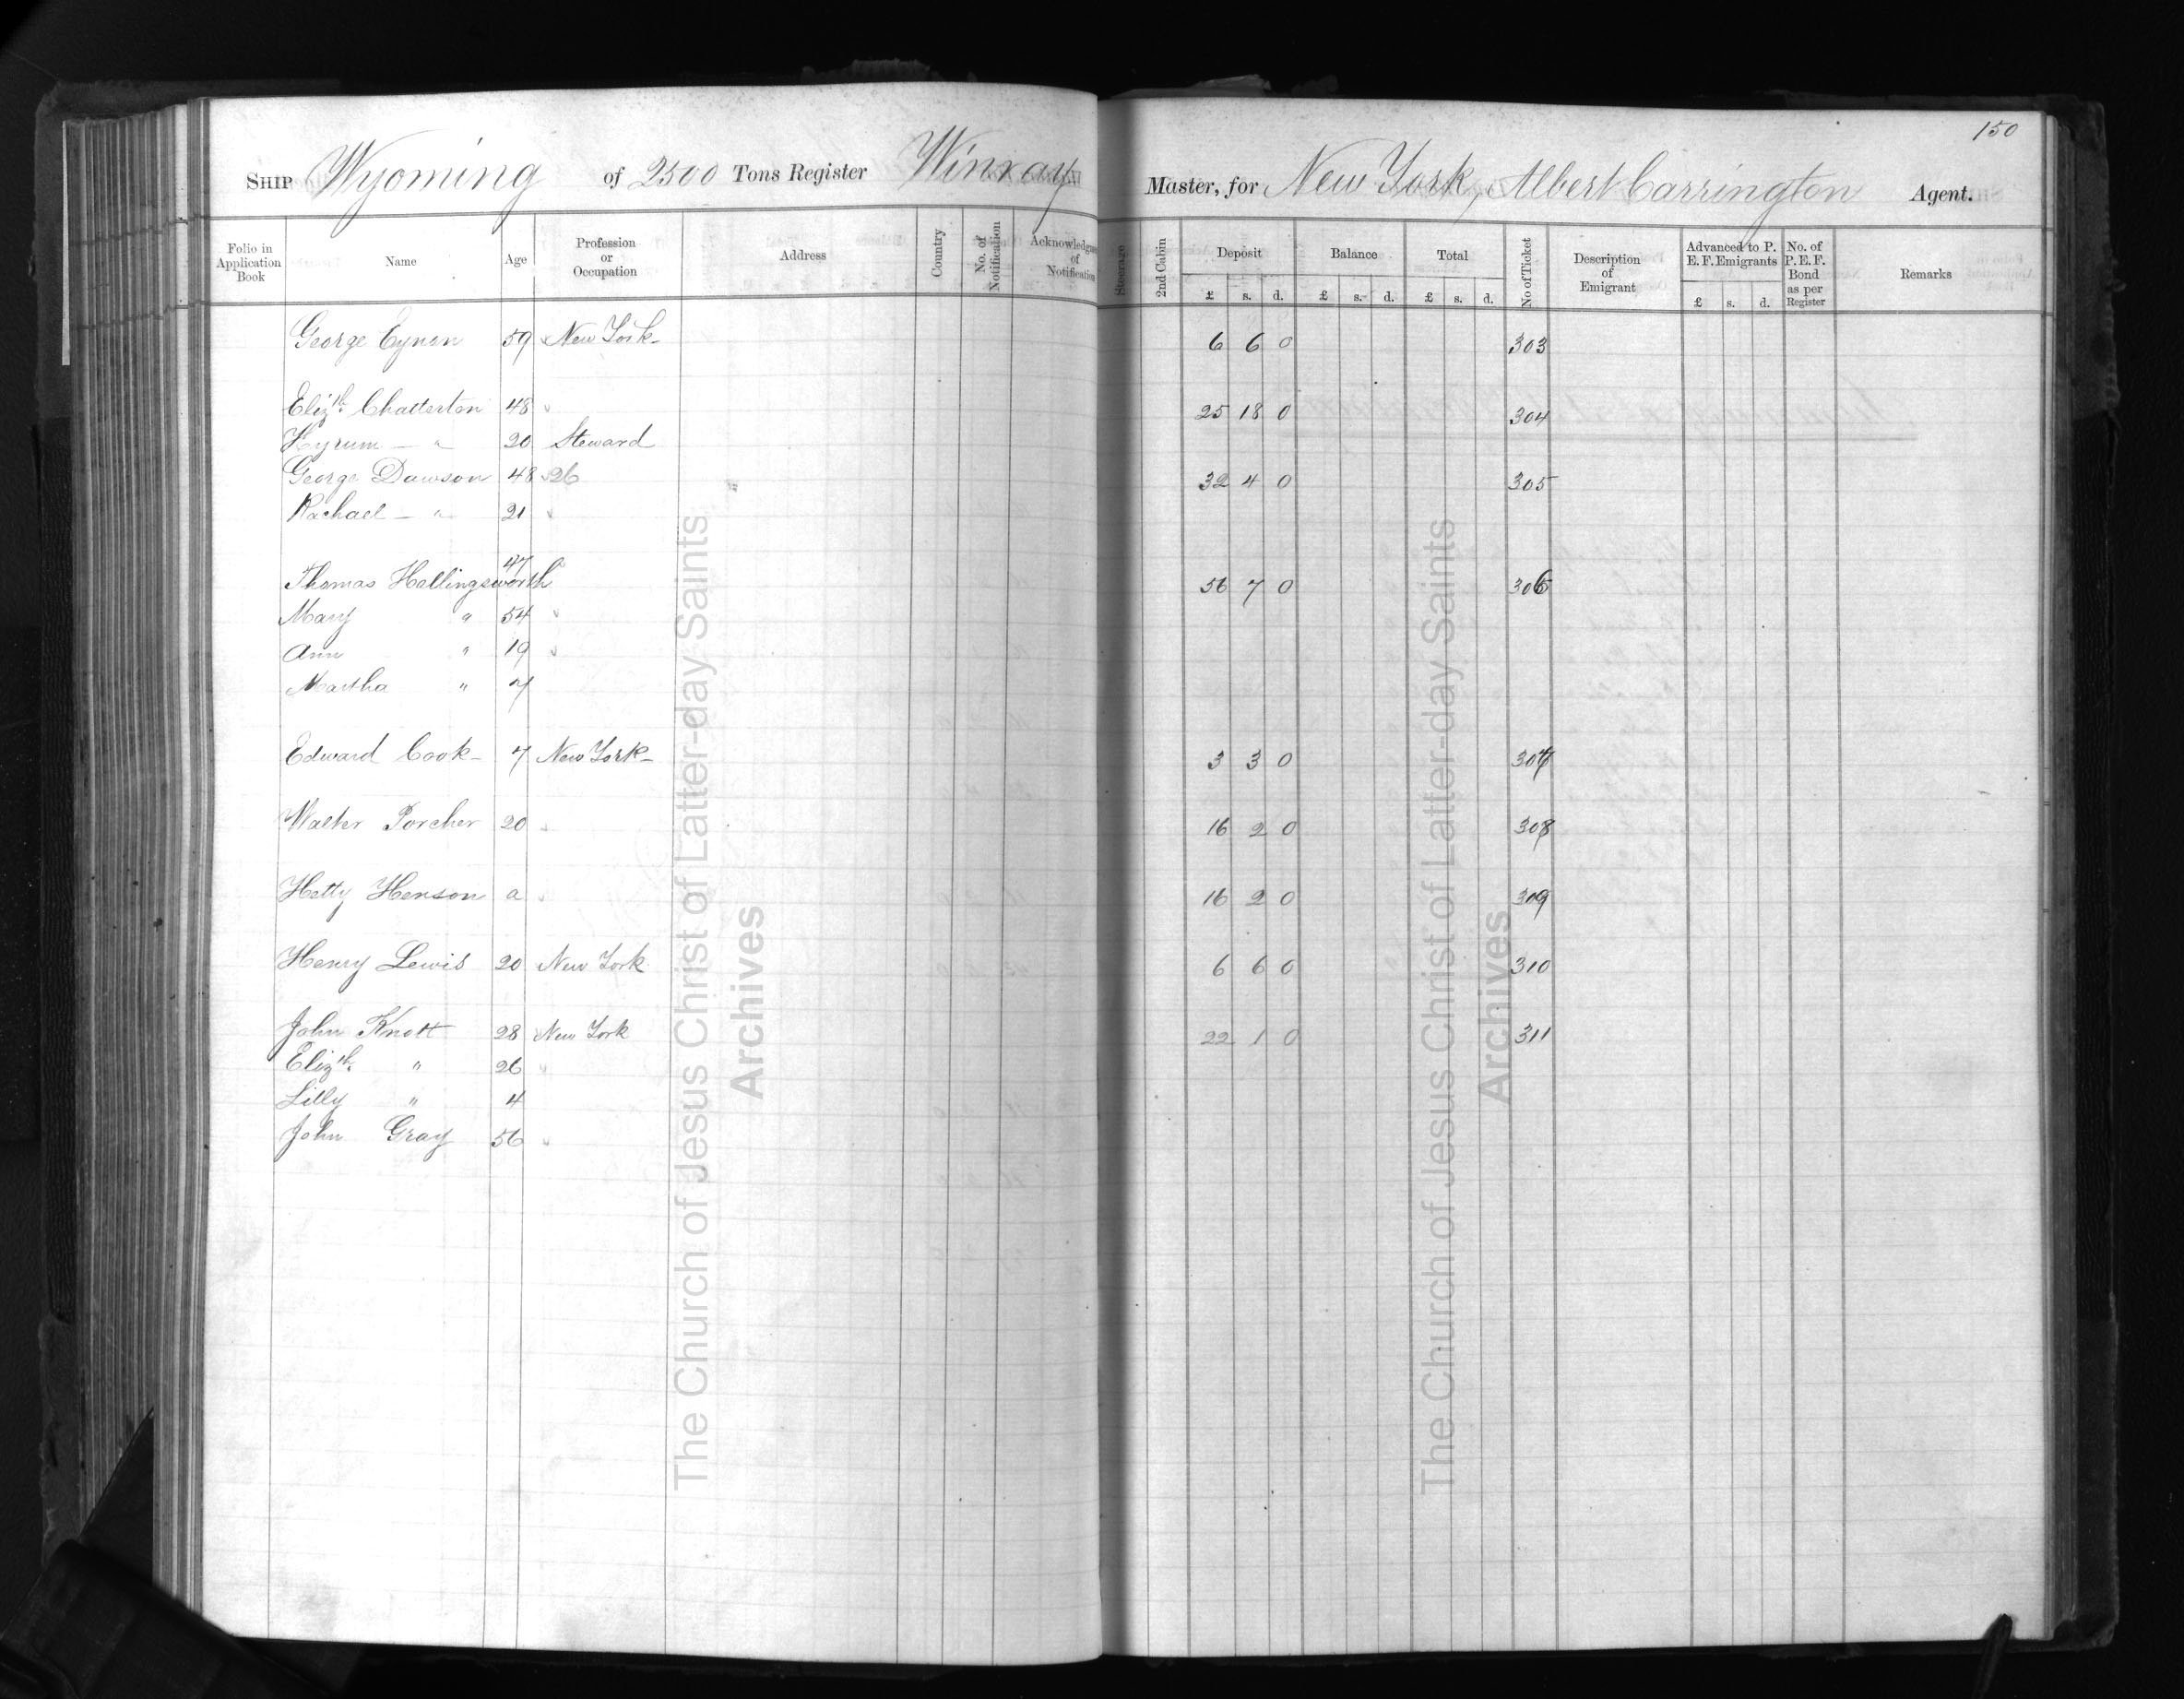 150
SHIP Wyoming of 2500 Tons Register Winray Master, for New York, Albert Carrington Agent.
Folio in Application Book Name Age Profession or Occupation Address Country No. of Notification Acknowledgme of Notification Steerage 2nd Cabin Deposit Balance Total No of Ticket Description of Emigrant Advanced to P. E. F. Emigrants No. of P. E. F. Bond as per Register Remarks
£ s. d. £ s. d. £ s. d. £ s. d.
George Eynon 59 New York 6 6 0 303
Elizth Chatterton 48 25 18 0 304
Hyrum — " 20 Steward
George Dawson 48 26 32 4 0 305
Rachael — " 21
Thomas Hollingsworth 47 56 7 0 306
Mary " 54
Ann " 19
Martha " 7
Edward Cook 7 New York 3 3 0 307
Walter Porcher 20 16 2 0 308
Hetty Henson a 16 2 0 309
Henry Lewis 20 New York 6 6 0 310
John Knott 28 New York 22 1 0 311
Elizth " 26
Lilly " 4
John Gray 56
The Church of Jesus Christ of Latter-day Saints
Archives
The Church of Jesus Christ of Latter-day Saints
Archives